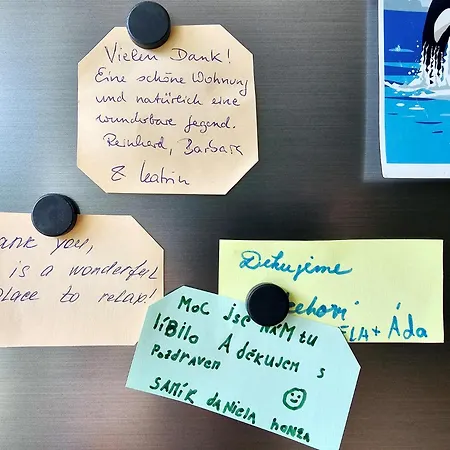 Vielen Dank!
Eine schöne Wohnung
und natürlich eine
wunderbare Gegend.
Reinhard, Barbara
& Katrin
ank you,
is a wonderful
place to relax!
Děkujeme
ELA + Áda
MOC jse NÁM tu
líBilo A děkujem s
POZDRAVEM
SAMÍK daNiela hoNza